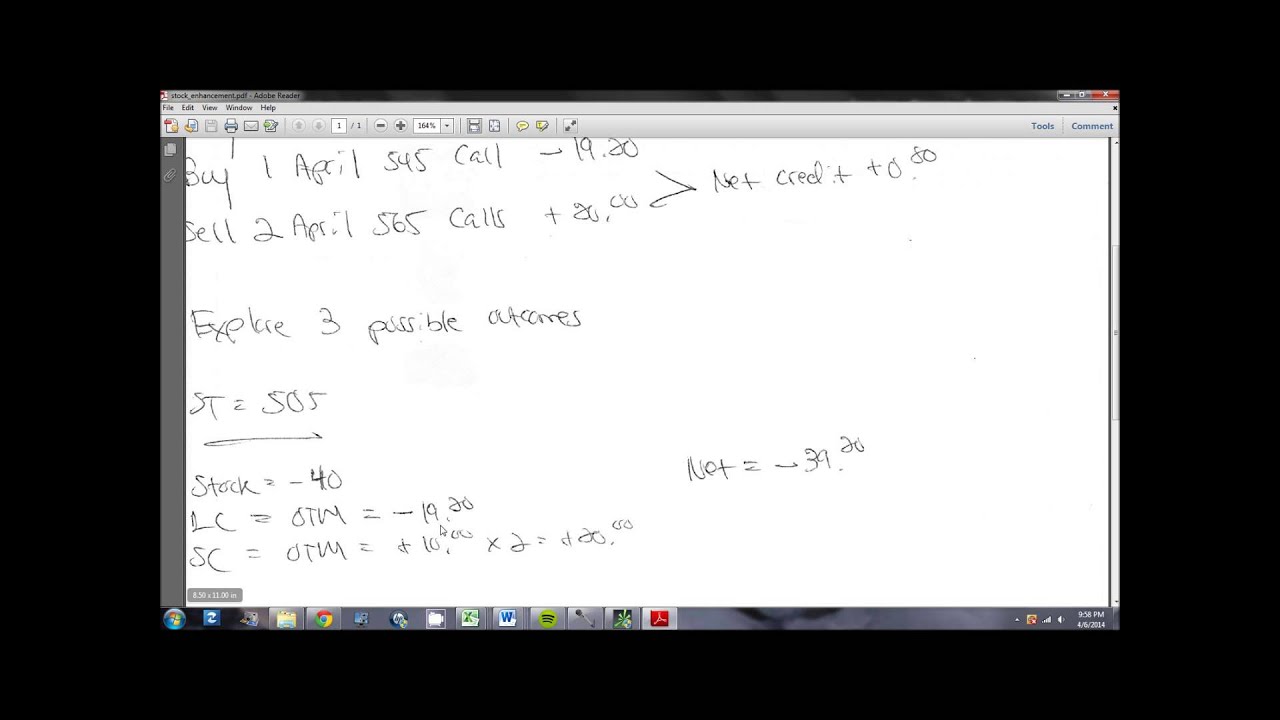 stock_enhancement.pdf - Adobe Reader
File Edit View Window Help
1 / 1 164% Tools Comment
Buy 1 April 545 Call - 19.20
Net credit +0.80
Sell 2 April 565 Calls + 20.00
Explore 3 possible outcomes
ST = 505
Net = - 39.20
Stock = - 40
LC = OTM = - 19.20
SC = OTM = + 10.00 x 2 = +20.00
8.50 x 11.00 in
9:58 PM
4/6/2014